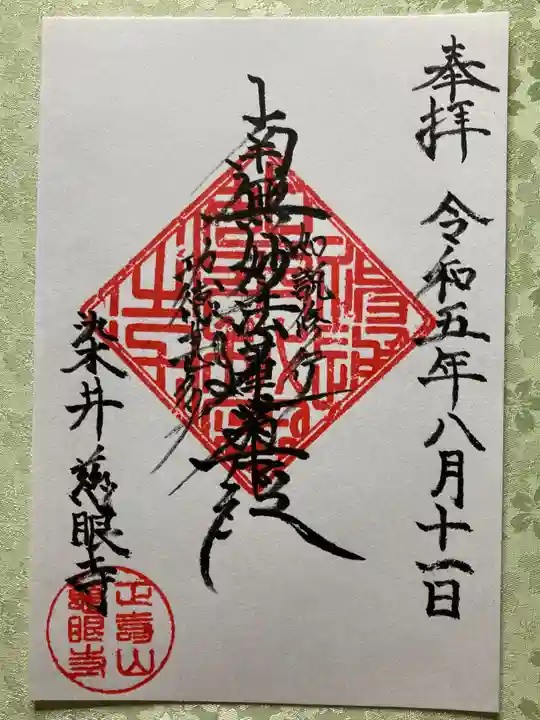 奉拝 令和五年八月十一日
如説修行
南無妙法蓮華経
功徳甚多
染井 慈眼寺
正壽山
慈眼寺